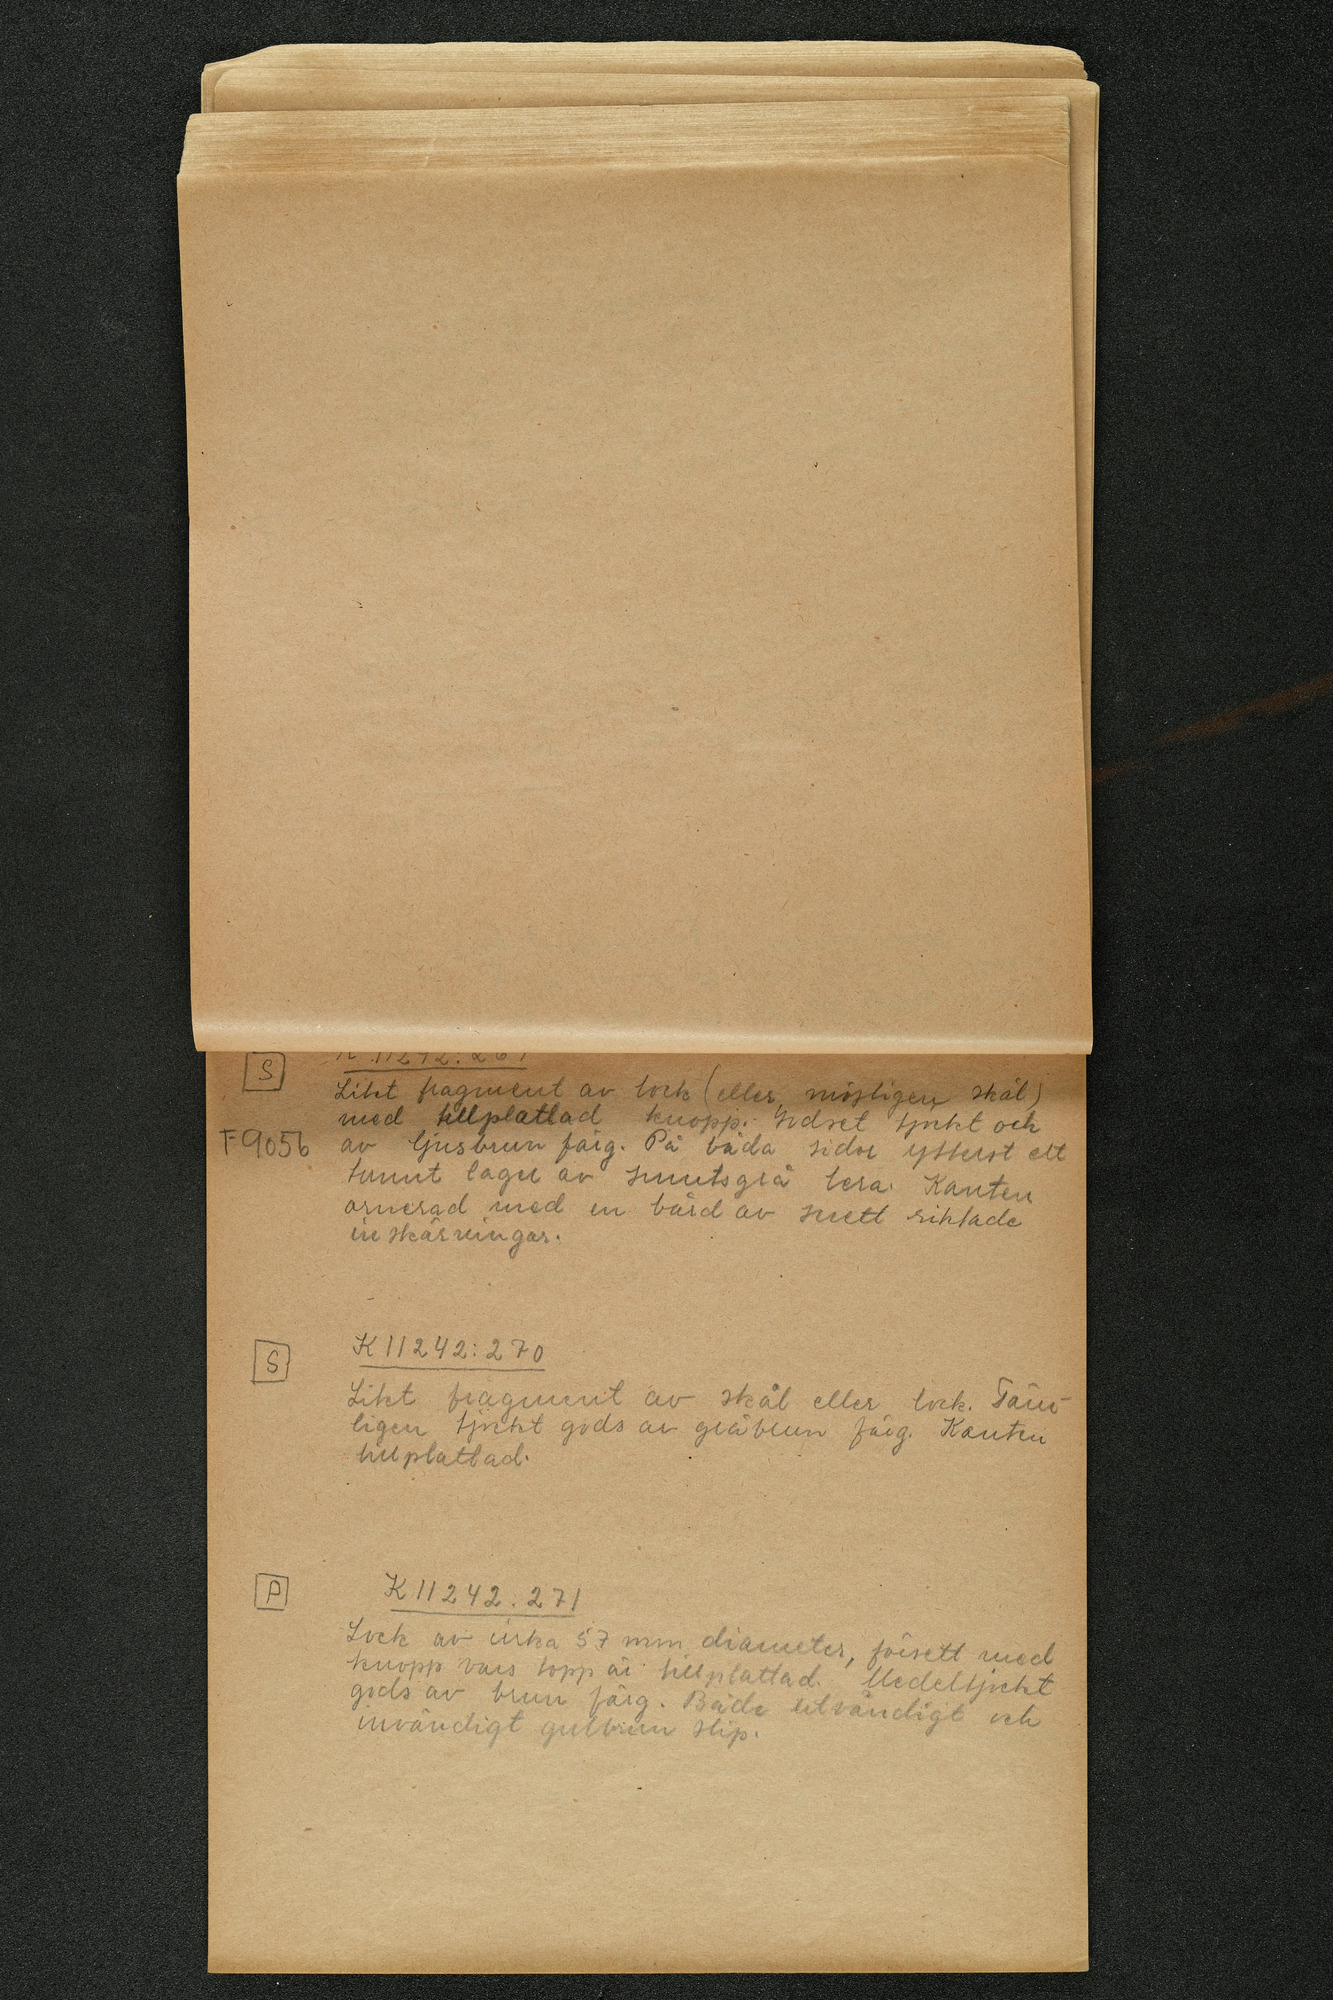 S K 11242:267
Litet fragment av lock (eller möjligen skål)
med tillplattad knopp. Godset tjockt och
F9056 av ljusbrun färg. På båda sidor ytterst ett
tunnt lager av smutsgrå lera. Kanten
ornerad med en bård av snett riktade
inskärningar.
S K 11242:270
Litet fragment av skål eller lock. Täm-
ligen tjockt gods av gråbrun färg. Kanten
tillplattad.
P K 11242.271
Lock av cirka 57 mm diameter, försett med
knopp vars topp är tillplattad. Medeltjockt
gods av brun färg. Både utvändigt och
invändigt gulbrun slip.